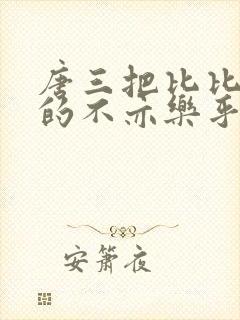 唐三把比比
的不亦樂乎
安簫夜